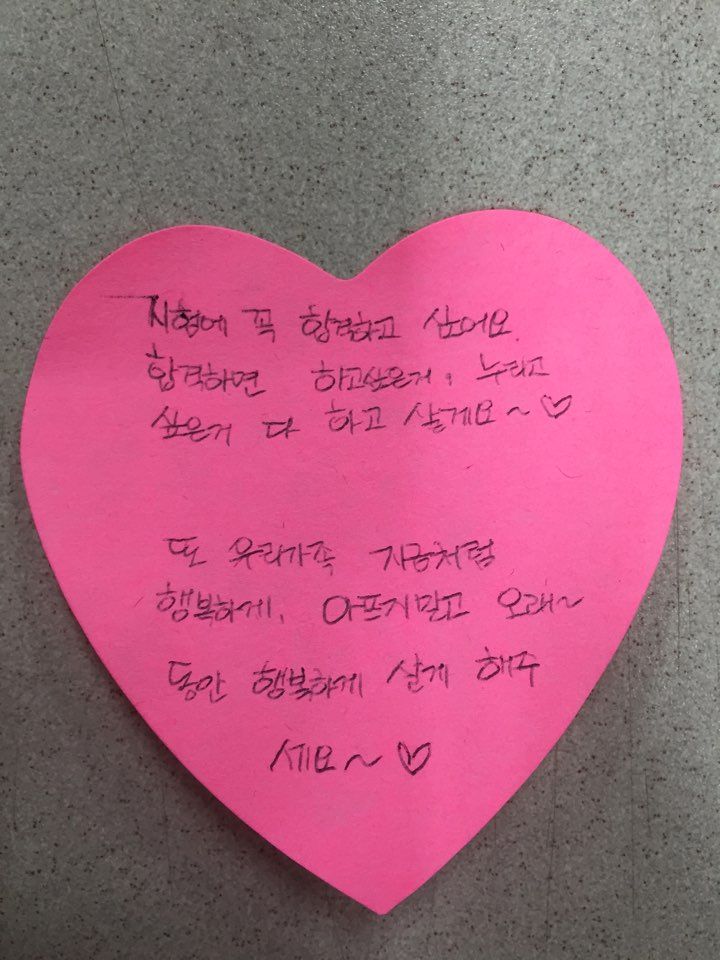 시험에 꼭 합격하고 싶어요.
합격하면 하고싶은거, 누리고
싶은거 다 하고 살게요~♡
또 우리가족 지금처럼
행복하게, 아프지말고 오래~
동안 행복하게 살게 해주
세요~♡